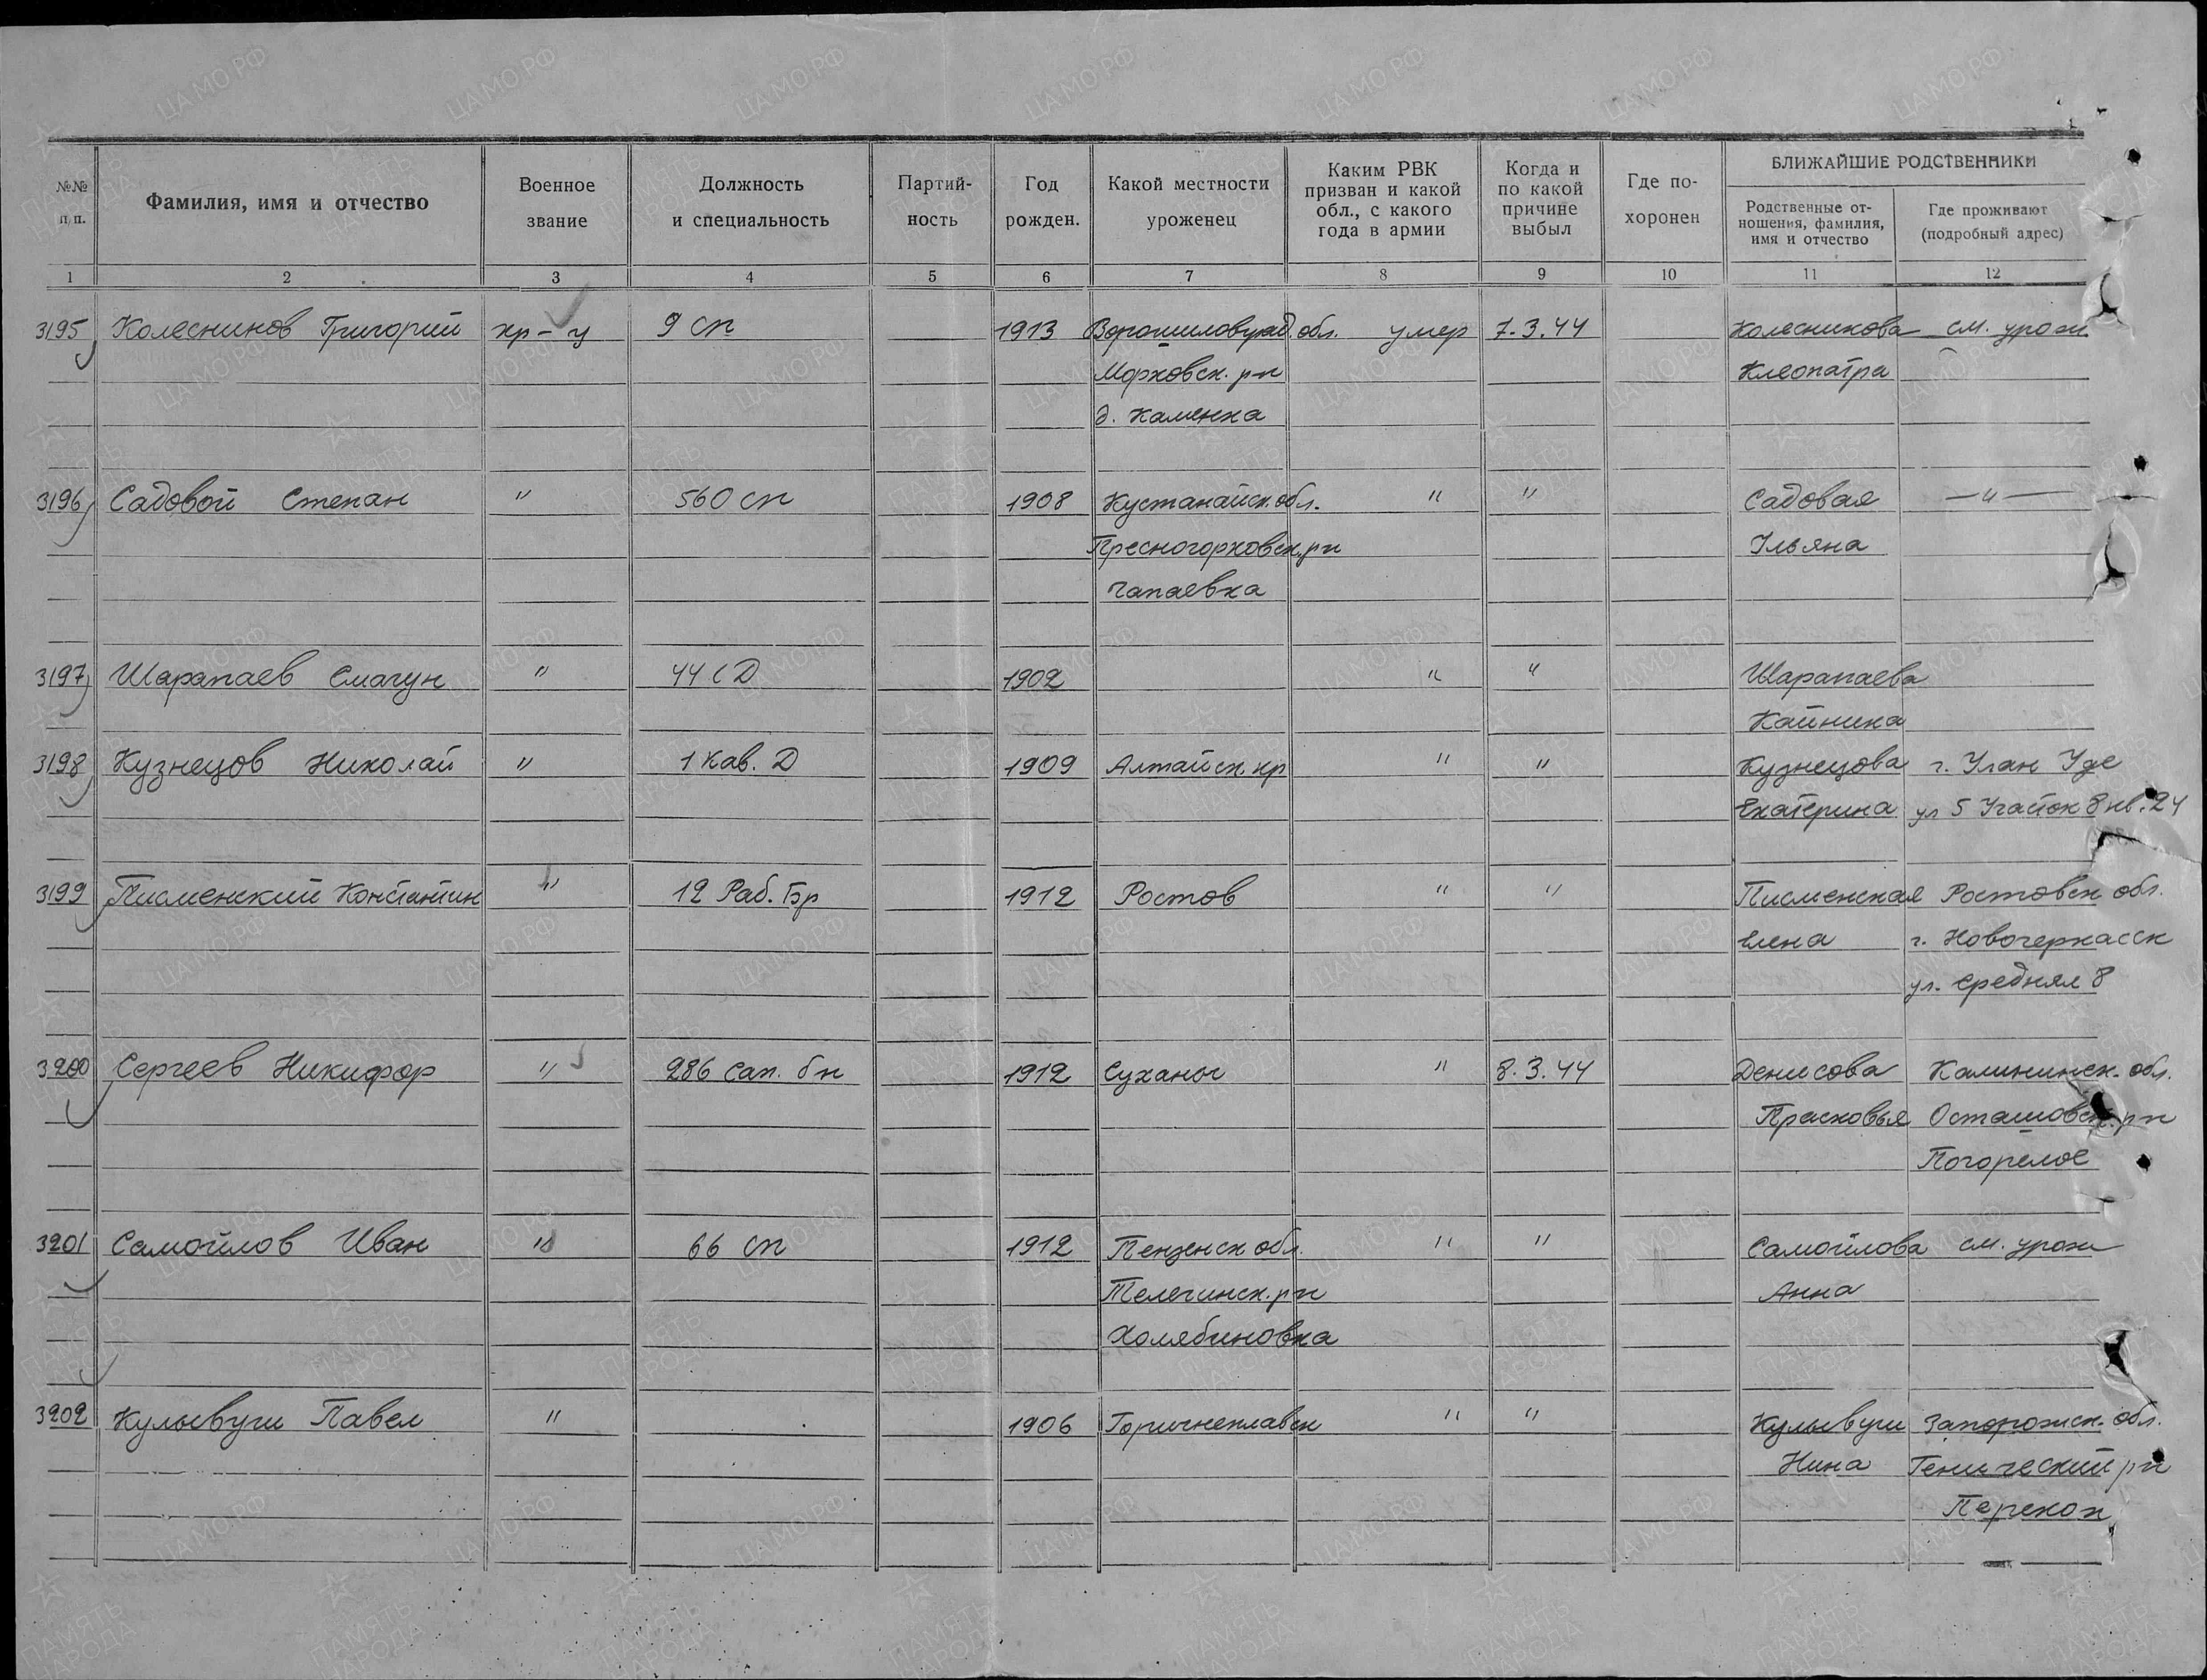 №№ п/п. | Фамилия, имя и отчество | Военное звание | Должность и специальность | Партий- ность | Год рожден. | Какой местности уроженец | Каким РВК призван и какой обл., с какого года в армии | Когда и по какой причине выбыл | Где по- хоронен | БЛИЖАЙШИЕ РОДСТВЕННИКИ
Родственные от- ношения, фамилия, имя и отчество | Где проживают (подробный адрес)
1 2 3 4 5 6 7 8 9 10 11 12
3195 Колесников Григорий кр-ц 9 сп 1913 Ворошиловград. обл. умер 7.3.44 Колесникова см. урож.
Марковск. р-н Клеопатра
д. Каменка
3196 Садовой Степан " 560 сп 1908 Кустанайск. обл. " " Садовая —"—
Пресногорковск. р-н Ульяна
Чапаевка
3197 Шарапаев Смагун " 44 СД 1902 " " Шарапаева
Кайника
3198 Кузнецов Николай " 1 Кав. Д 1909 Алтайск. кр " " Кузнецова г. Улан Уде
Екатерина ул 5 Участок 8 кв. 24
3199 Писменский Константин " 12 Раб. Бр 1912 Ростов " " Писменская Ростовск обл.
Елена г. Новочеркасск
ул. Средняя 8
3200 Сергеев Никифор " 286 сап. бн 1912 Суханы " 8.3.44 Денисова Калининск. обл.
Прасковья Осташовск. р-н
Погорелое
3201 Самойлов Иван " 66 сп 1912 Пензенск обл. " " Самойлова см. урож
Телегинск. р-н Анна
Холябиновка
3202 Кулывуш Павел " 1906 " " Кулывуш Запорожск. обл.
Нина Генический р-н
Перекоп
ЦАМО.РФ
ПАМЯТЬ НАРОДА